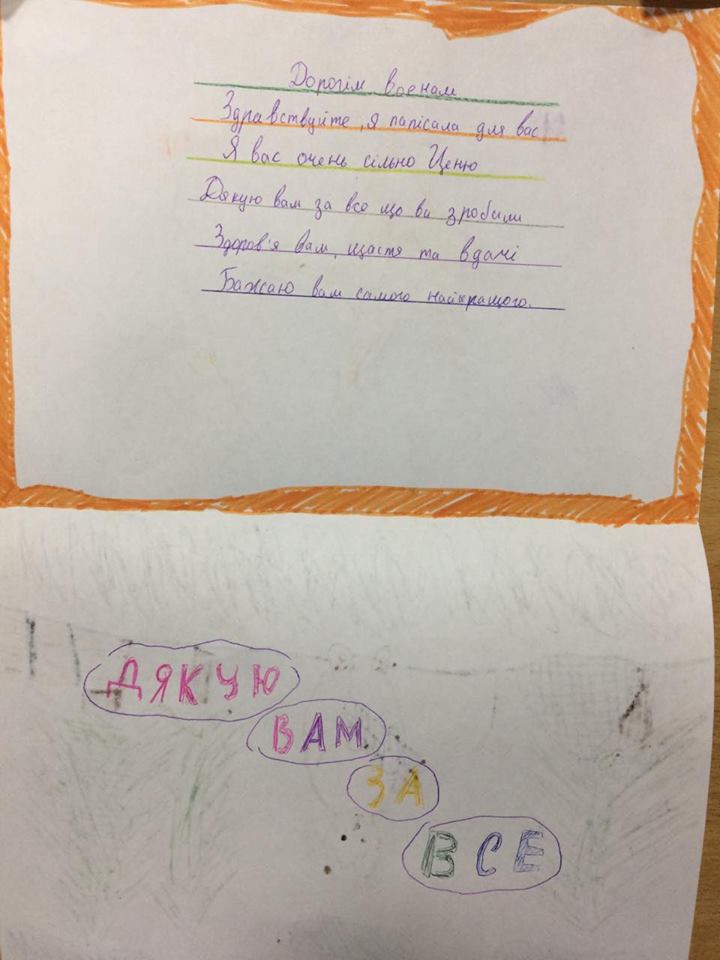 Дорогім воєнам
Здравствуйте, я папісала для вас
Я вас очень сільно Ценю
Дякую вам за все що ви зробили
Здоров'я вам, щастя та вдачі
Бажаю вам самого найкращого.
ДЯКУЮ
ВАМ
ЗА
ВСЕ